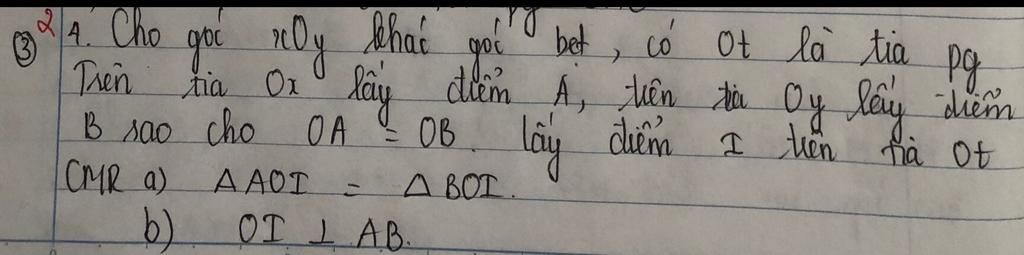 ③ 2 4. Cho góc xOy khác góc bẹt, có Ot là tia pg
Trên tia Ox lấy điểm A, trên tia Oy lấy điểm
B sao cho OA = OB. lấy điểm I trên tia Ot
CMR a) ΔAOI = ΔBOI.
b) OI ⊥ AB.